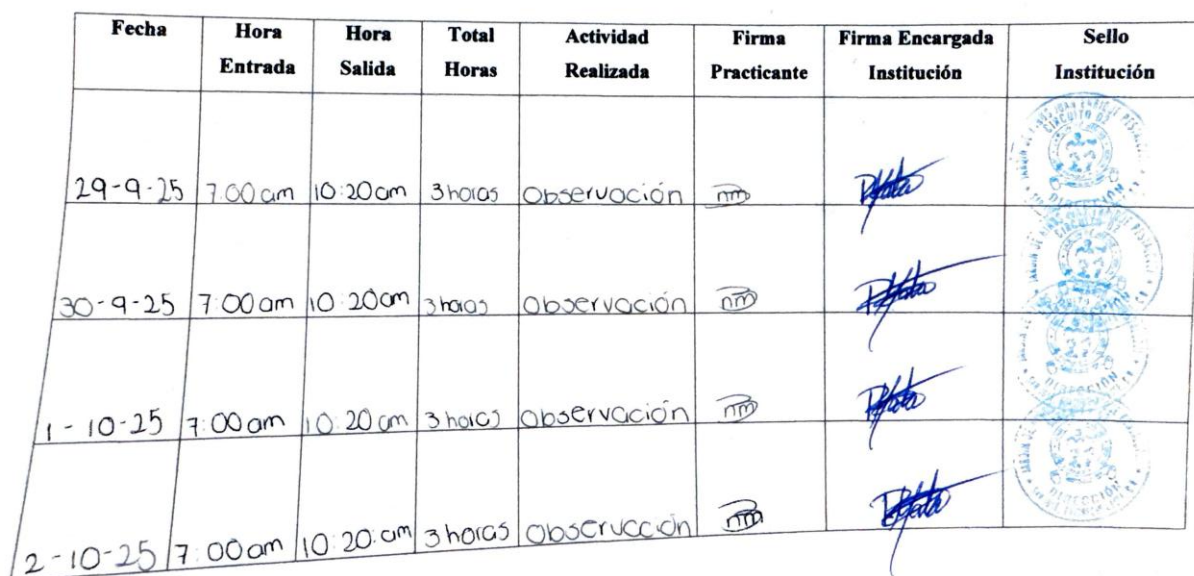 Fecha Hora Entrada Hora Salida Total Horas Actividad Realizada Firma Practicante Firma Encargada Institución Sello Institución
29-9-25 7:00 am 10:20am 3 horas Observación nm
CIRCUITO 02
DIRECCIÓN
30-9-25 7:00 am 10:20am 3 horas Observación nm
CIRCUITO 02
1-10-25 7:00 am 10:20 am 3 horas Observación nm
DIRECCION
2-10-25 7:00am 10:20:am 3 horas Observacción nm
DIRECCION